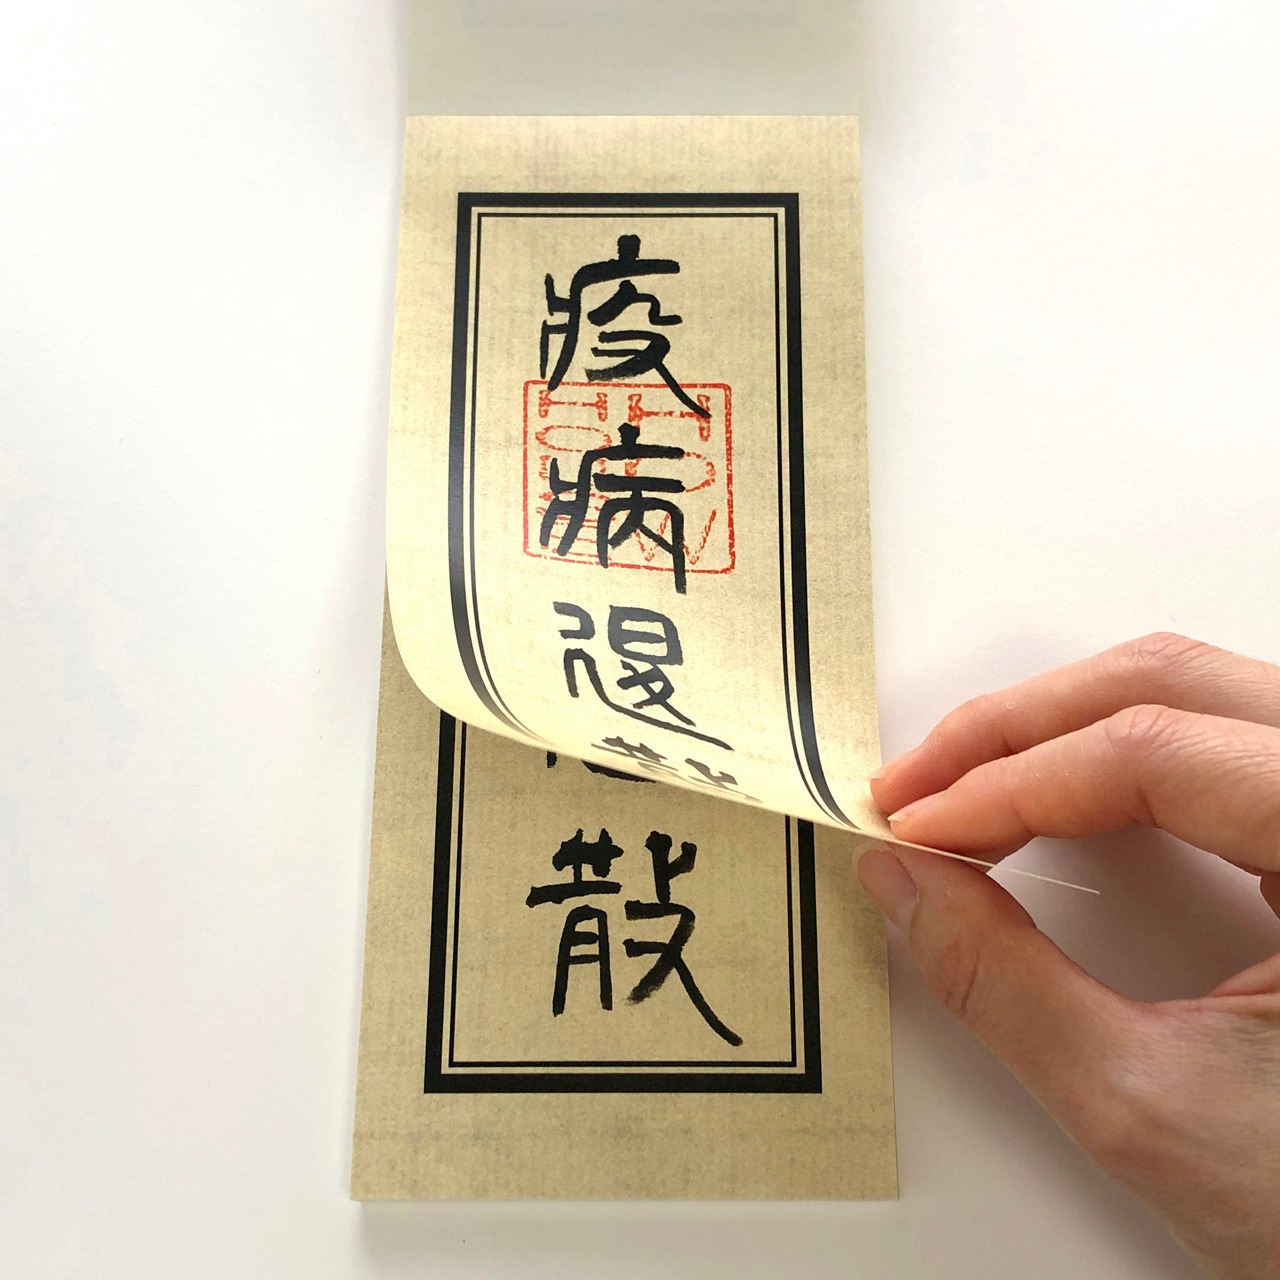 疫病退散
散